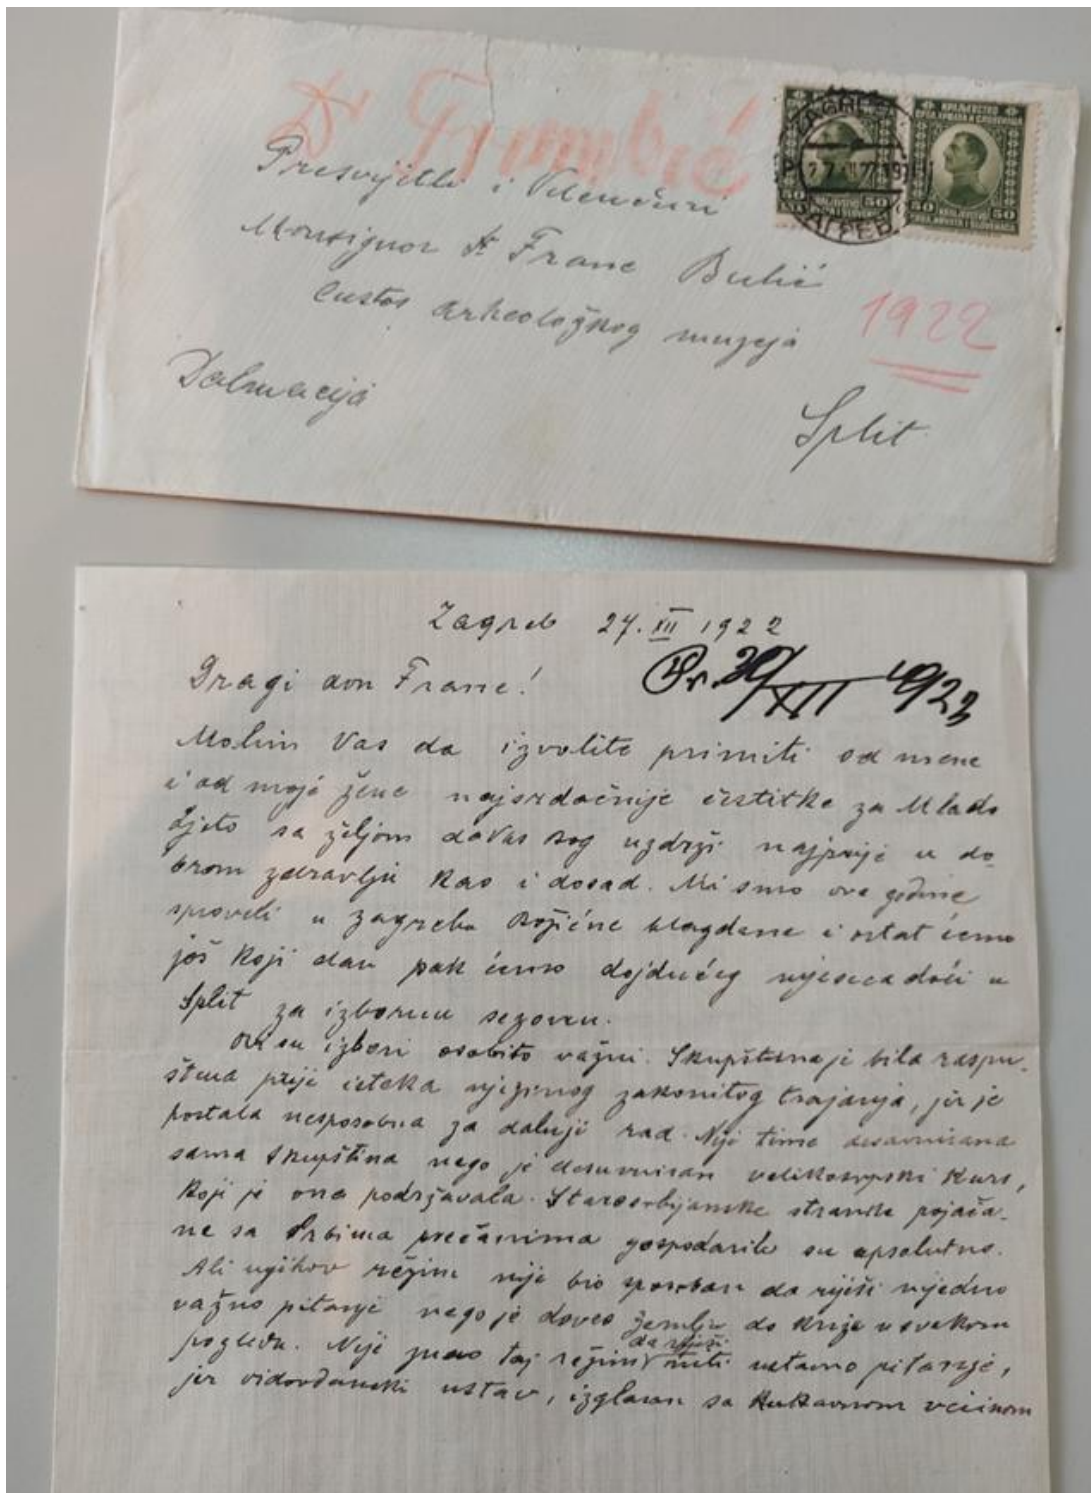 Dr Trumbić
Presvijetli i Velenčuni
Monsignor Dr Frane Bulić
Custos arheološkog muzeja
Dalmacija
Split
1922
ZAGREB
ЗАГРЕБ
КРАЉЕВСТВО
СРБА, ХРВАТА И СЛОВЕНАЦА
50 50
KRALJEVSTVO
SRBA, HRVATA I SLOVENACA
Zagreb 27. XII 1922
Pr. 30/XII 1923
Dragi don Frane!
Molim Vas da izvolite primiti od mene
i od moje žene najsrdačnije čestitke za Mlado
ljeto sa željom da Vas Bog uzdrži najprije u do-
brom zdravlju kao i dosad. Mi smo ove godine
sproveli u Zagrebu Božićne blagdane i ostat ćemo
još koji dan pak ćemo dojdućeg mjeseca doći u
Split za izbornu sezonu.
Ovi su izbori osobito važni. Skupština je bila raspu-
štena prije isteka njezinog zakonitog trajanja, jer je
postala nesposobna za daljnji rad. Nije time desavuirana
sama skupština nego je desavuiran velikosrpski kurs,
koji je ona podržavala. Starosrbijanske stranke pojača-
ne sa Srbima prečanima gospodarile su apsolutno.
Ali njihov režim nije bio sposoban da riješi nijedno
važno pitanje nego je doveo zemlju do krize u svakom
pogledu. Nije taj režim da riješi niti ustavno pitanje,
jer vidovdanski ustav, izglasan sa kukavnom većinom